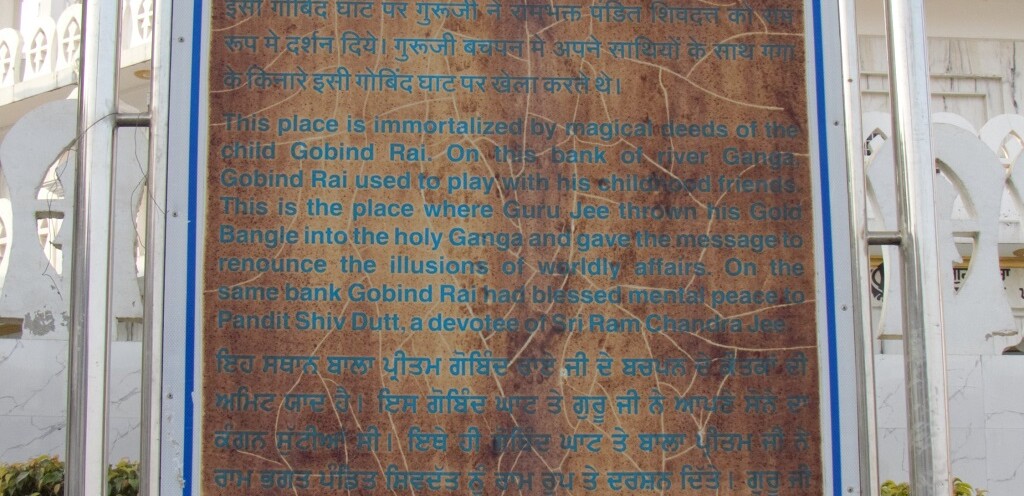 इसी गोबिंद घाट पर गुरूजी ने रामभक्त पंडित शिवदत्त को राम
रूप मे दर्शन दिये। गुरूजी बचपन मे अपने साथियों के साथ गंगा
के किनारे इसी गोबिंद घाट पर खेला करते थे।
This place is immortalized by magical deeds of the
child Gobind Rai. On this bank of river Ganga
Gobind Rai used to play with his childhood friends.
This is the place where Guru Jee thrown his Gold
Bangle into the holy Ganga and gave the message to
renounce the illusions of worldly affairs. On the
same bank Gobind Rai had blessed mental peace to
Pandit Shiv Dutt, a devotee of Sri Ram Chandra Jee
ਇਹ ਸਥਾਨ ਬਾਲਾ ਪ੍ਰੀਤਮ ਗੋਬਿੰਦ ਰਾਏ ਜੀ ਦੇ ਬਚਪਨ ਦੇ ਕੌਤਕਾਂ ਦੀ
ਅਮਿਟ ਯਾਦ ਹੈ। ਇਸ ਗੋਬਿੰਦ ਘਾਟ ਤੇ ਗੁਰੂ ਜੀ ਨੇ ਆਪਣੇ ਸੋਨੇ ਦਾ
ਕੰਗਨ ਸੁੱਟਿਆ ਸੀ। ਇਥੇ ਹੀ ਗੋਬਿੰਦ ਘਾਟ ਤੇ ਬਾਲਾ ਪ੍ਰੀਤਮ ਜੀ ਨੇ
ਰਾਮ ਭਗਤ ਪੰਡਿਤ ਸ਼ਿਵਦੱਤ ਨੂੰ ਰਾਮ ਰੂਪ ਤੇ ਦਰਸ਼ਨ ਦਿੱਤੇ। ਗੁਰੂ ਜੀ